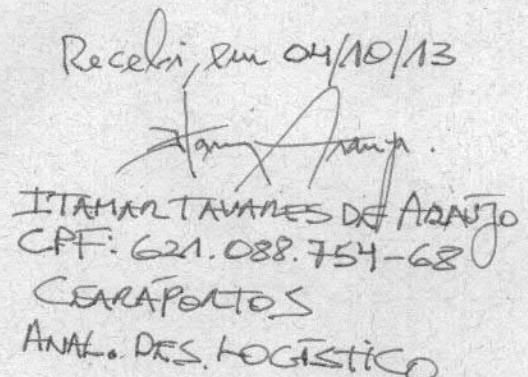 Recebi, em 04/10/13
Itamar Araújo.
ITAMAR TAVARES DE ARAÚJO
CPF: 621.088.754-68
CEARÁPORTOS
ANAL. DES. LOGÍSTICO